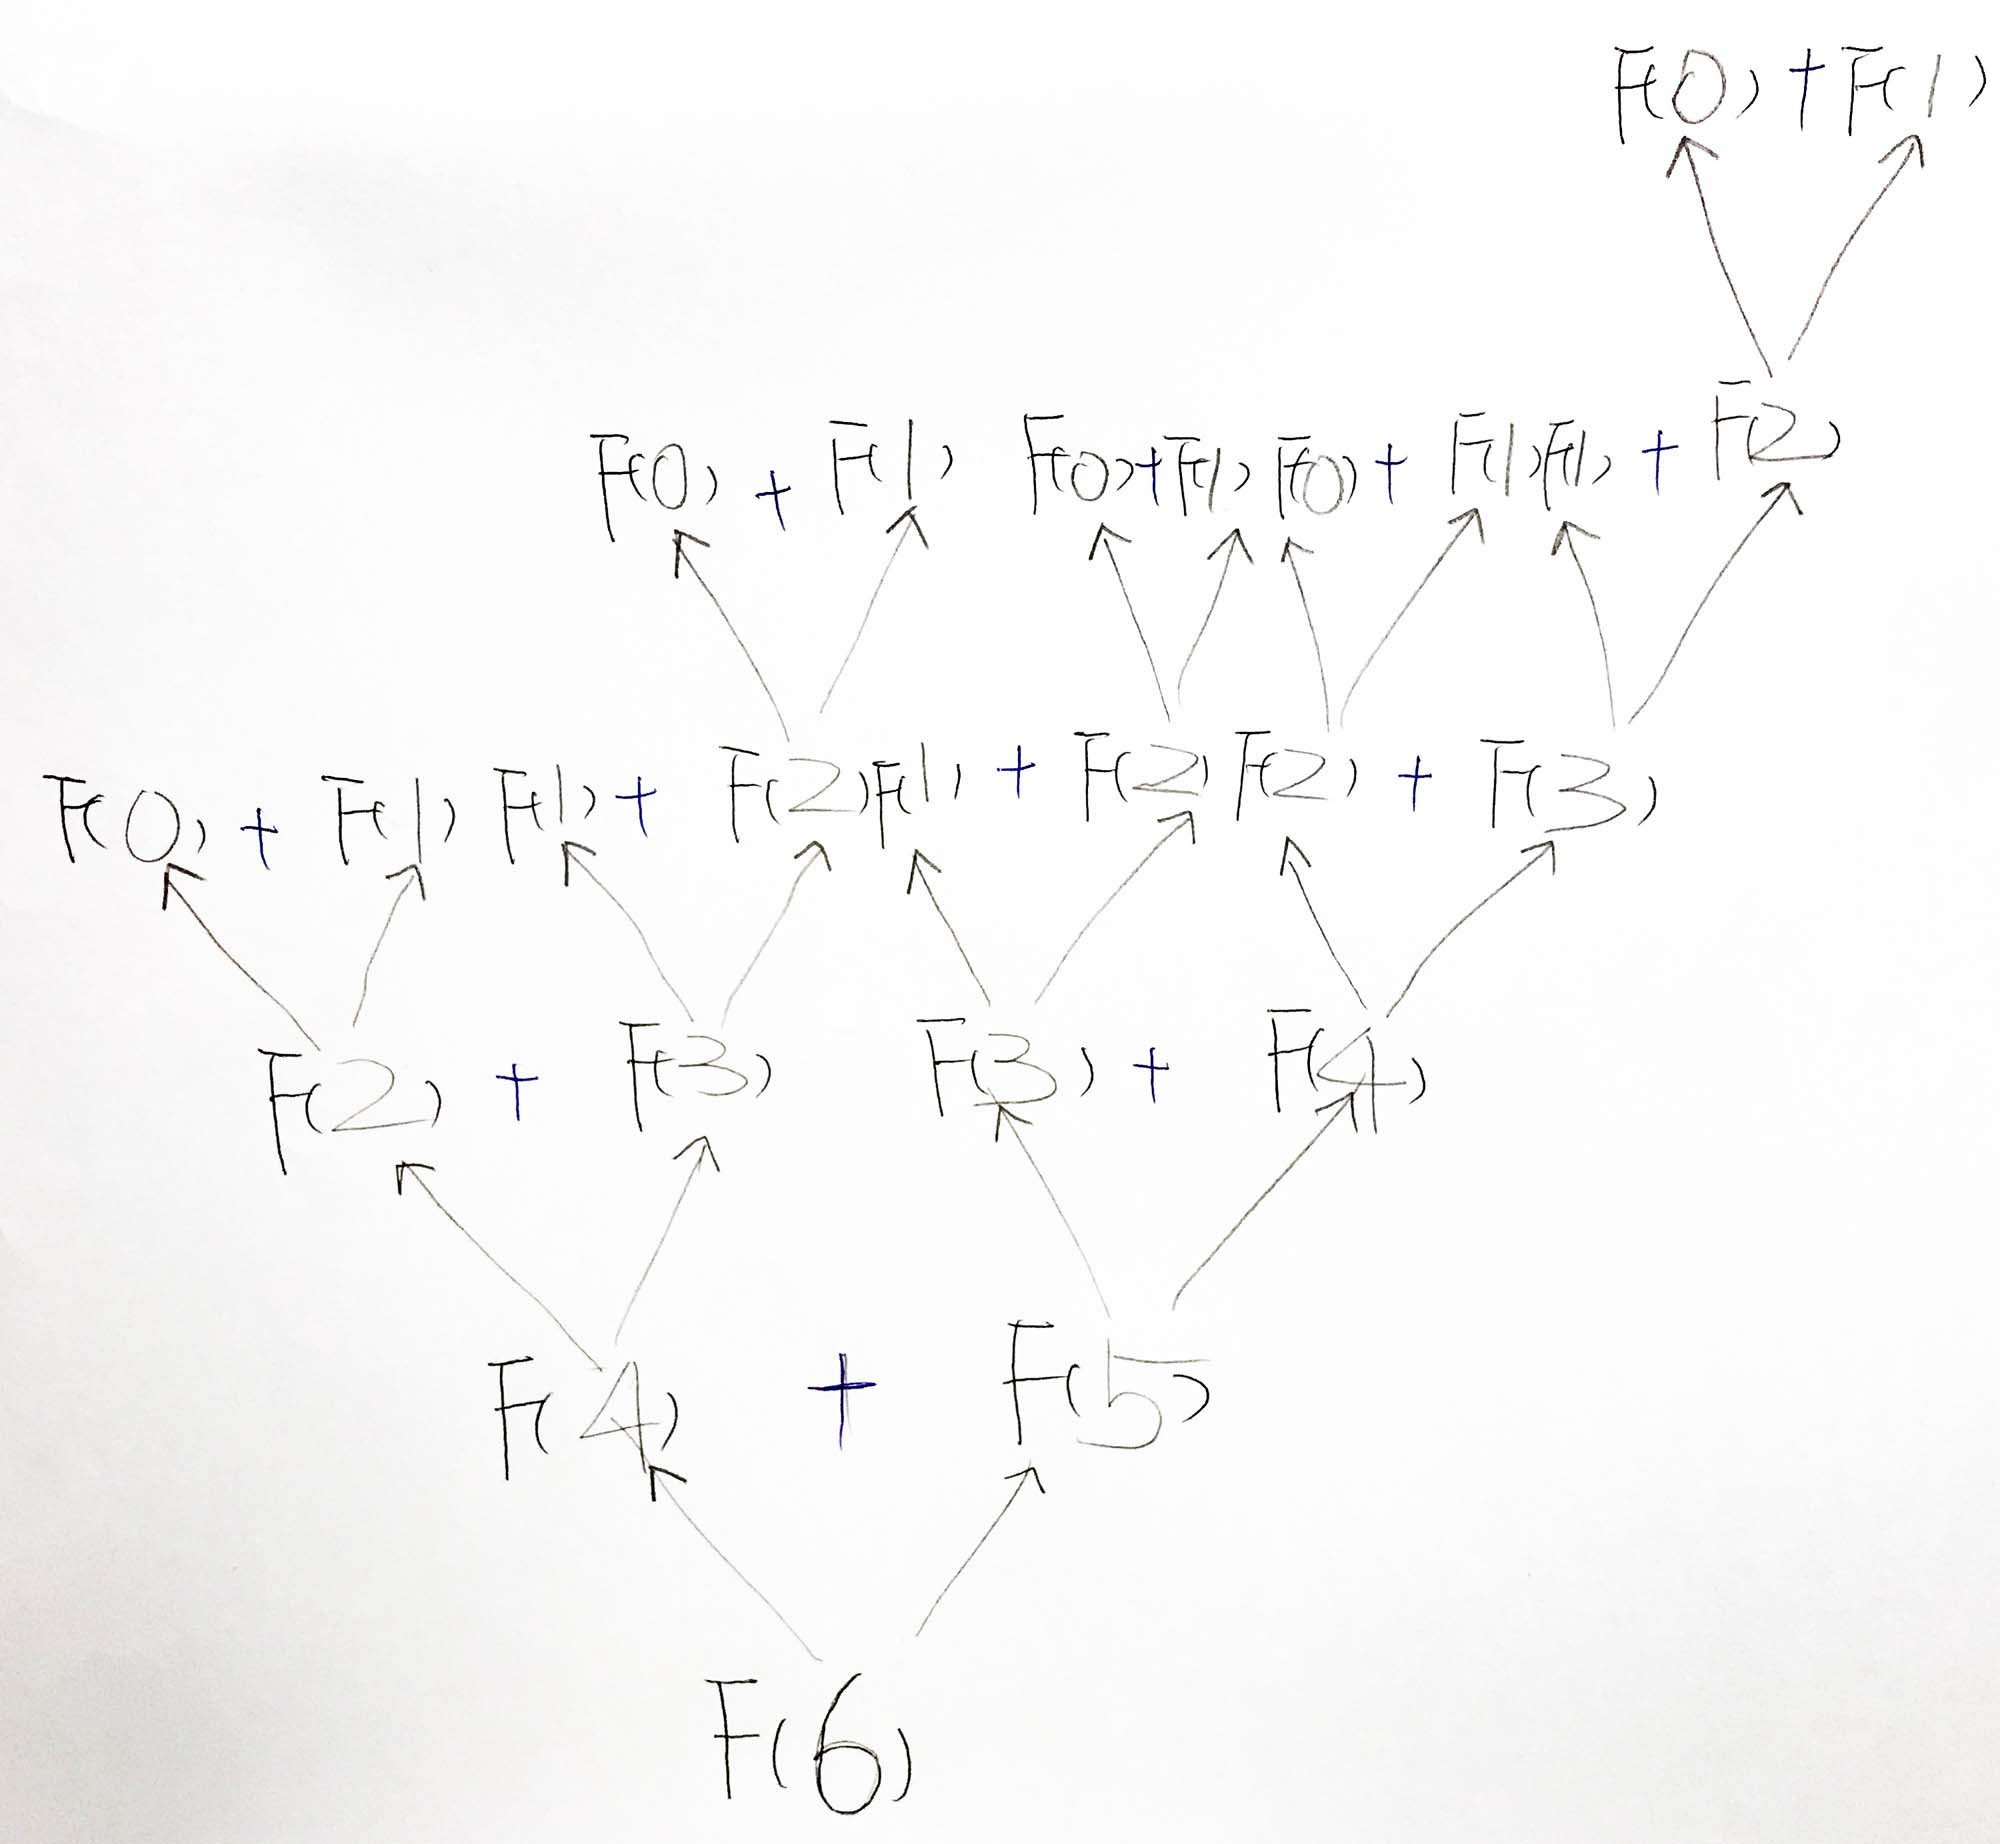 F(0) + F(1)
F(0) + F(1) F(0) + F(1) F(0) + F(1) F(1) + F(2)
F(0) + F(1) F(1) + F(2) F(1) + F(2) F(2) + F(3)
F(2) + F(3) F(3) + F(4)
F(4) + F(5)
F(6)